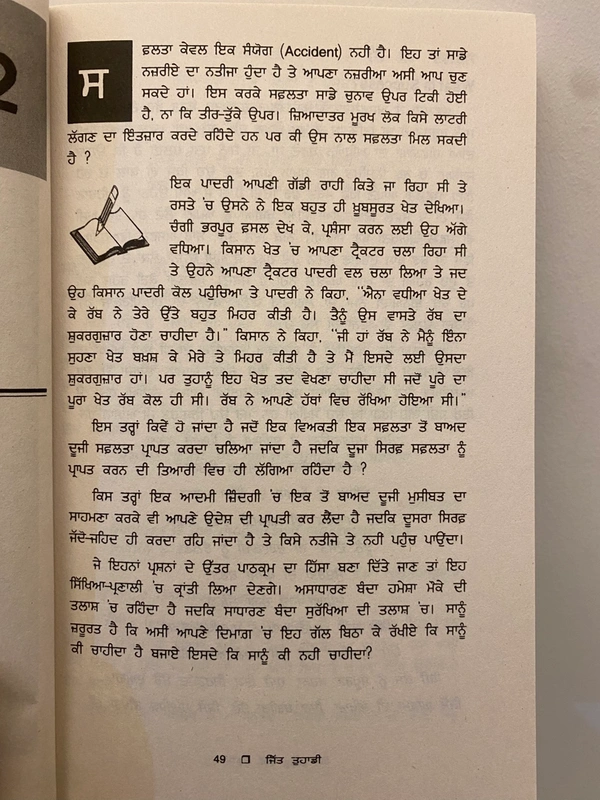 2
ਸਫ਼ਲਤਾ ਕੇਵਲ ਇਕ ਸੰਯੋਗ (Accident) ਨਹੀ ਹੈ। ਇਹ ਤਾਂ ਸਾਡੇ
ਨਜ਼ਰੀਏ ਦਾ ਨਤੀਜਾ ਹੁੰਦਾ ਹੈ ਤੇ ਆਪਣਾ ਨਜ਼ਰੀਆ ਅਸੀ ਆਪ ਚੁਣ
ਸਕਦੇ ਹਾਂ। ਇਸ ਕਰਕੇ ਸਫ਼ਲਤਾ ਸਾਡੇ ਚੁਨਾਵ ਉਪਰ ਟਿਕੀ ਹੋਈ
ਹੈ, ਨਾ ਕਿ ਤੀਰ-ਤੁੱਕੇ ਉਪਰ। ਜ਼ਿਆਦਾਤਰ ਮੂਰਖ ਲੋਕ ਕਿਸੇ ਲਾਟਰੀ
ਲੱਗਣ ਦਾ ਇੰਤਜ਼ਾਰ ਕਰਦੇ ਰਹਿੰਦੇ ਹਨ ਪਰ ਕੀ ਉਸ ਨਾਲ ਸਫਲਤਾ ਮਿਲ ਸਕਦੀ
ਹੈ ?
ਇਕ ਪਾਦਰੀ ਆਪਣੀ ਗੱਡੀ ਰਾਹੀ ਕਿਤੇ ਜਾ ਰਿਹਾ ਸੀ ਤੇ
ਰਸਤੇ 'ਚ ਉਸਨੇ ਨੇ ਇਕ ਬਹੁਤ ਹੀ ਖ਼ੂਬਸੂਰਤ ਖੇਤ ਦੇਖਿਆ।
ਚੰਗੀ ਭਰਪੂਰ ਫ਼ਸਲ ਦੇਖ ਕੇ, ਪ੍ਰਸੰਸਾ ਕਰਨ ਲਈ ਉਹ ਅੱਗੇ
ਵਧਿਆ। ਕਿਸਾਨ ਖੇਤ 'ਚ ਆਪਣਾ ਟ੍ਰੈਕਟਰ ਚਲਾ ਰਿਹਾ ਸੀ
ਤੇ ਉਹਨੇ ਆਪਣਾ ਟ੍ਰੈਕਟਰ ਪਾਦਰੀ ਵਲ ਚਲਾ ਲਿਆ ਤੇ ਜਦ
ਉਹ ਕਿਸਾਨ ਪਾਦਰੀ ਕੋਲ ਪਹੁੰਚਿਆ ਤੇ ਪਾਦਰੀ ਨੇ ਕਿਹਾ, "ਐਨਾ ਵਧੀਆ ਖੇਤ ਦੇ
ਕੇ ਰੱਬ ਨੇ ਤੇਰੇ ਉੱਤੇ ਬਹੁਤ ਮਿਹਰ ਕੀਤੀ ਹੈ। ਤੈਨੂੰ ਉਸ ਵਾਸਤੇ ਰੱਬ ਦਾ
ਸ਼ੁਕਰਗੁਜ਼ਾਰ ਹੋਣਾ ਚਾਹੀਦਾ ਹੈ।" ਕਿਸਾਨ ਨੇ ਕਿਹਾ, "ਜੀ ਹਾਂ ਰੱਬ ਨੇ ਮੈਨੂੰ ਇੰਨਾ
ਸੁਹਣਾ ਖੇਤ ਬਖ਼ਸ਼ ਕੇ ਮੇਰੇ ਤੇ ਮਿਹਰ ਕੀਤੀ ਹੈ ਤੇ ਮੈਂ ਇਸਦੇ ਲਈ ਉਸਦਾ
ਸ਼ੁਕਰਗੁਜ਼ਾਰ ਹਾਂ। ਪਰ ਤੁਹਾਨੂੰ ਇਹ ਖੇਤ ਤਦ ਵੇਖਣਾ ਚਾਹੀਦਾ ਸੀ ਜਦੋਂ ਪੂਰੇ ਦਾ
ਪੂਰਾ ਖੇਤ ਰੱਬ ਕੋਲ ਹੀ ਸੀ। ਰੱਬ ਨੇ ਆਪਣੇ ਹੱਥਾਂ ਵਿਚ ਰੱਖਿਆ ਹੋਇਆ ਸੀ।"
ਇਸ ਤਰ੍ਹਾਂ ਕਿਵੇਂ ਹੋ ਜਾਂਦਾ ਹੈ ਜਦੋਂ ਇਕ ਵਿਅਕਤੀ ਇਕ ਸਫਲਤਾ ਤੋਂ ਬਾਅਦ
ਦੂਜੀ ਸਫਲਤਾ ਪ੍ਰਾਪਤ ਕਰਦਾ ਚਲਿਆ ਜਾਂਦਾ ਹੈ ਜਦਕਿ ਦੂਜਾ ਸਿਰਫ਼ ਸਫਲਤਾ ਨੂੰ
ਪ੍ਰਾਪਤ ਕਰਨ ਦੀ ਤਿਆਰੀ ਵਿਚ ਹੀ ਲੱਗਿਆ ਰਹਿੰਦਾ ਹੈ ?
ਕਿਸ ਤਰ੍ਹਾਂ ਇਕ ਆਦਮੀ ਜ਼ਿੰਦਗੀ 'ਚ ਇਕ ਤੋਂ ਬਾਅਦ ਦੂਜੀ ਮੁਸੀਬਤ ਦਾ
ਸਾਹਮਣਾ ਕਰਕੇ ਵੀ ਆਪਣੇ ਉਦੇਸ਼ ਦੀ ਪ੍ਰਾਪਤੀ ਕਰ ਲੈਂਦਾ ਹੈ ਜਦਕਿ ਦੂਸਰਾ ਸਿਰਫ਼
ਜੱਦੋ-ਜਹਿਦ ਹੀ ਕਰਦਾ ਰਹਿ ਜਾਂਦਾ ਹੈ ਤੇ ਕਿਸੇ ਨਤੀਜੇ ਤੇ ਨਹੀ ਪਹੁੰਚ ਪਾਉਂਦਾ।
ਜੇ ਇਹਨਾਂ ਪ੍ਰਸ਼ਨਾਂ ਦੇ ਉੱਤਰ ਪਾਠਕ੍ਰਮ ਦਾ ਹਿੱਸਾ ਬਣਾ ਦਿੱਤੇ ਜਾਣ ਤਾਂ ਇਹ
ਸਿੱਖਿਆ-ਪ੍ਰਣਾਲੀ 'ਚ ਕ੍ਰਾਂਤੀ ਲਿਆ ਦੇਣਗੇ। ਅਸਾਧਾਰਣ ਬੰਦਾ ਹਮੇਸ਼ਾ ਮੌਕੇ ਦੀ
ਤਲਾਸ਼ 'ਚ ਰਹਿੰਦਾ ਹੈ ਜਦਕਿ ਸਾਧਾਰਣ ਬੰਦਾ ਸੁਰੱਖਿਆ ਦੀ ਤਲਾਸ਼ 'ਚ। ਸਾਨੂੰ
ਜ਼ਰੂਰਤ ਹੈ ਕਿ ਅਸੀ ਆਪਣੇ ਦਿਮਾਗ 'ਚ ਇਹ ਗੱਲ ਬਿਠਾ ਕੇ ਰੱਖੀਏ ਕਿ ਸਾਨੂੰ
ਕੀ ਚਾਹੀਦਾ ਹੈ ਬਜਾਏ ਇਸਦੇ ਕਿ ਸਾਨੂੰ ਕੀ ਨਹੀ ਚਾਹੀਦਾ?
49 ❒ ਜਿੱਤ ਤੁਹਾਡੀ